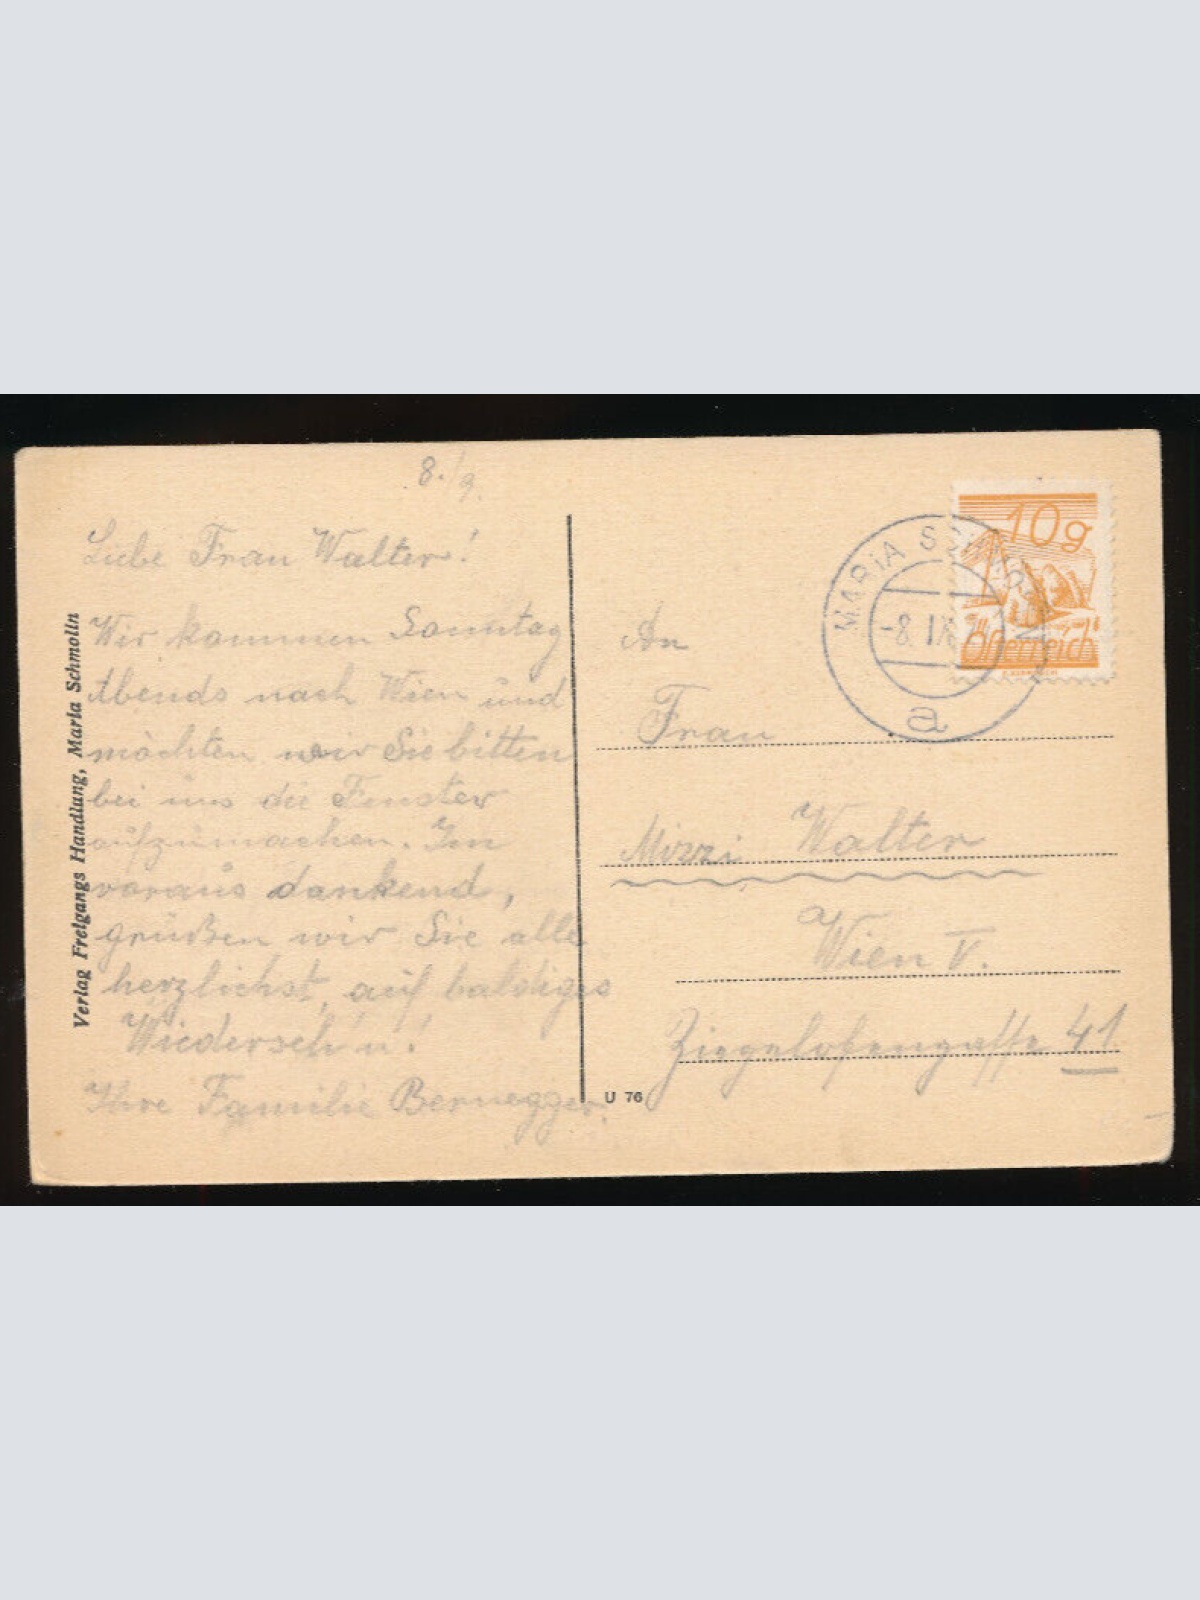 8./9.
Liebe Frau Walter!
Wir kommen Sonntag
Abends nach Wien und
möchten wir Sie bitten
bei uns die Fenster
aufzumachen. Im
voraus dankend,
grüßen wir Sie alle
herzlichst, auf baldiges
Wiederseh'n!
Ihre Familie Bernegger.
Verlag Freigangs Handlung, Maria Schmolln
U 76
10g
Österreich
MARIA SCHMOLLN
-8. IX
a
An
Frau
Mizzi Walter
Wien V.
Ziegelofengasse 41.